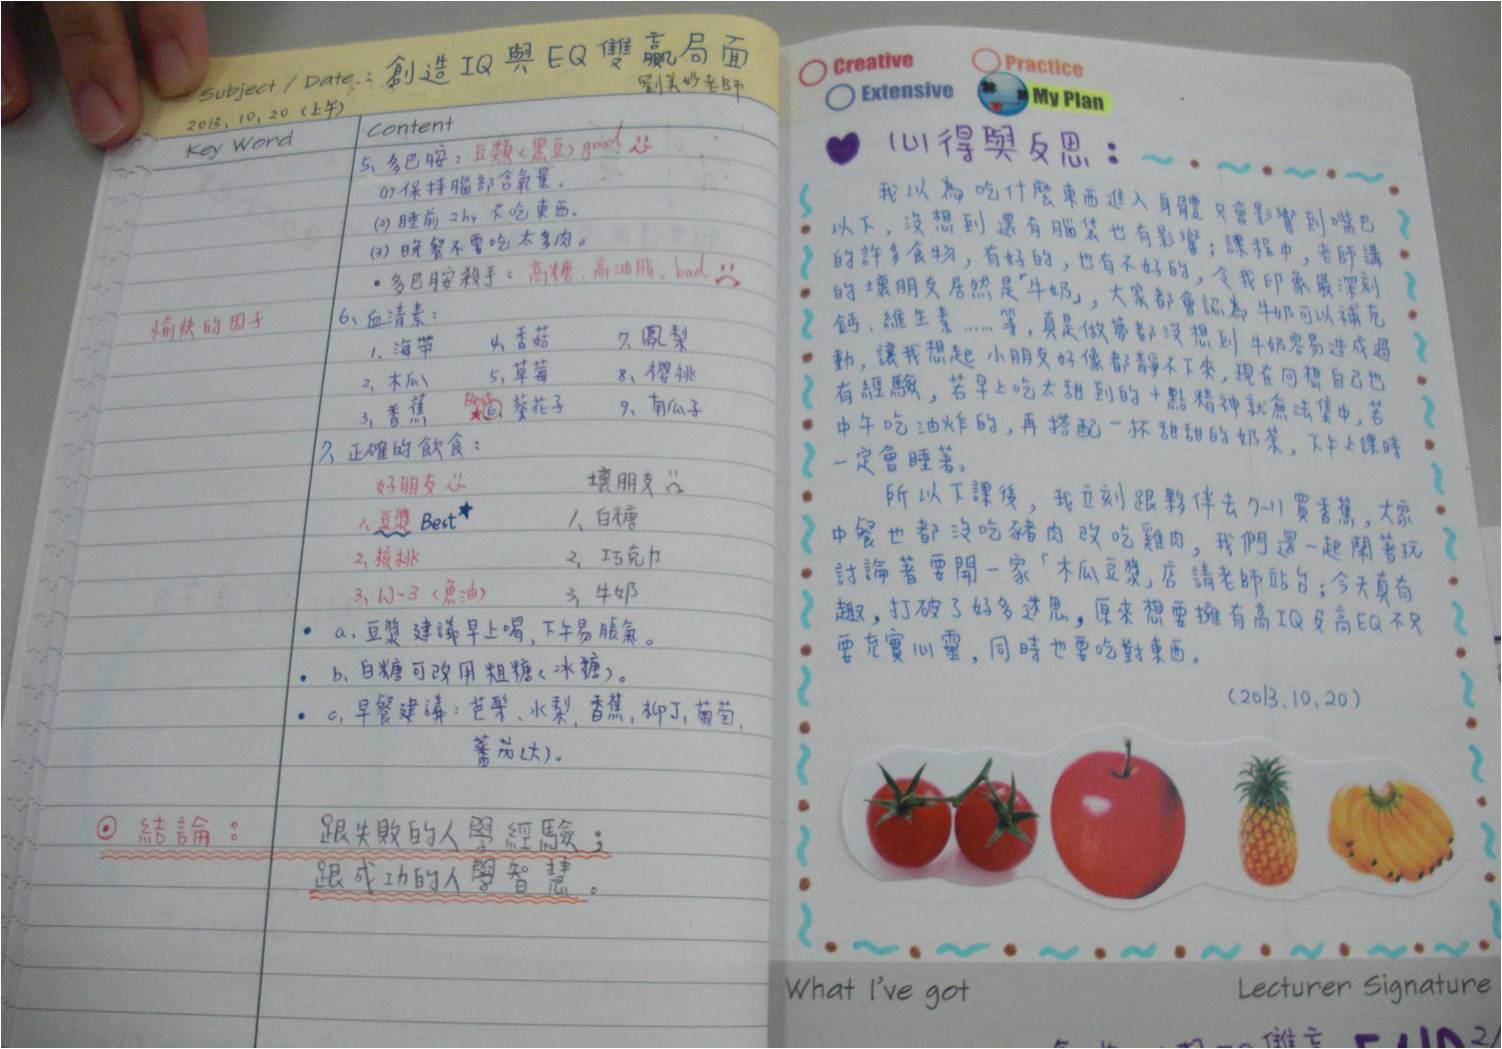 Subject / Date.: 創造 IQ 與 EQ 雙贏局面
2013, 10, 20 (上午) 劉美妙老師
Key Word Content
5, 多巴胺: 豆類(黑豆) good
(1)保持腦部含氧量。
(2) 睡前 2hr 不吃東西。
(3) 晚餐不要吃太多肉。
• 多巴胺殺手: 高糖、高油脂、bad
愉快的因子 6、血清素:
1、海帶 4、香菇 7、鳳梨
2、木瓜 5、草莓 8、櫻桃
3、香蕉 Best ★ 6、葵花子 9、南瓜子
7、正確的飲食:
好朋友 壞朋友
1、豆漿 Best★ 1、白糖
2、核桃 2、巧克力
3、W-3 (魚油) 3、牛奶
• a. 豆漿建議早上喝、下午易脹氣。
• b, 白糖可改用粗糖(冰糖)。
• c, 早餐建議: 芭樂、水梨, 香蕉, 柳丁, 葡萄,
蕃茄(大)。
結論: 跟失敗的人學經驗;
跟成功的人學智慧。
Creative Practice
Extensive My Plan
心得與反思:
我以為吃什麼東西進入身體只會影響到嘴巴
以下, 沒想到還有腦袋也有影響; 課程中, 老師講
的許多食物, 有好的, 也有不好的, 令我印象最深刻
的壞朋友居然是「牛奶」, 大家都會認為牛奶可以補充
鈣、維生素......等, 真是做夢都沒想到牛奶容易造成過
動, 讓我想起小朋友好像都靜不下來, 現在回想自己也
有經驗, 若早上吃太甜到的十點精神就無法集中, 若
中午吃油炸的, 再搭配一杯甜甜的奶茶, 下午上課時
一定會睡著。
所以下課後, 我立刻跟夥伴去7-11買香蕉, 大家
中餐也都沒吃豬肉改吃雞肉, 我們還一起鬧著玩
討論著要開一家「木瓜豆漿」店請老師站台; 今天真有
趣, 打破了好多迷思, 原來想要擁有高IQ及高EQ不只
要充實心靈, 同時也要吃對東西。
(2013, 10, 20)
What I've got Lecturer Signature